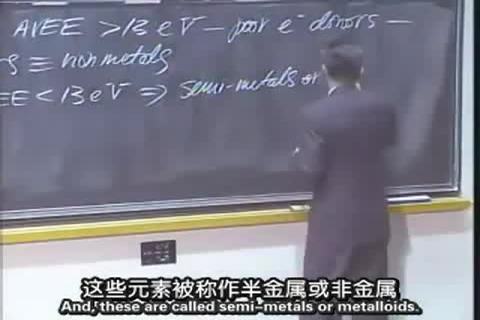 AVEE > 13 eV – poor e⁻ donors –
rs ≡ nonmetals
EE < 13 eV ⇒ semi-metals or
这些元素被称作半金属或非金属
And, these are called semi-metals or metalloids.